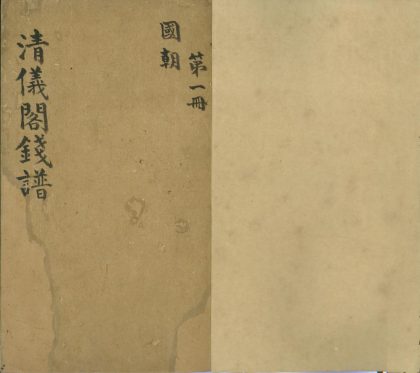 國朝
第一冊
清儀閣錢譜